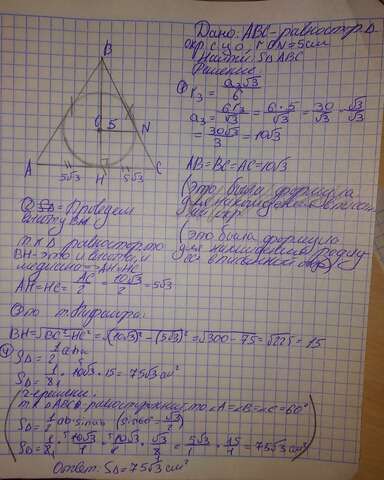 Дано: ABC - равностор. Δ
окр. с ц. O, r ON = 5 см
Найти: SΔABC
Решение
① r₃ = a₃√3 / 6
a₃ = 6r₃ / √3 = 6·5 / √3 = 30 / √3 · √3 / √3
= 30√3 / 3 = 10√3
AB=BC=AC=10√3
(это была формула
(это была формула
для нахождения радиуса
B
O 5 N
A H C
5√3 5√3
② Проведем
высоту BH
т.к Δ равностор. то
BH - это и высота, и
медиана => AH=HC
AH=HC= = 10√3 / 2 = 5√3
③ По т. Пифагора:
BH=√BC²-HC² = √(10√3)² - (5√3)² = √300-75 = √225 = 15
④ SΔ = 1/2 a·h
SΔ = · 10√3 · 15 = 75√3 см²
2 решение
т.к ΔABC - равносторонний, то ∠A=∠B=∠C=60°
SΔ = 1/2 ab·sin (sin60° = √3/2)
= 75√3 см²
Ответ: SΔ = 75√3 см²